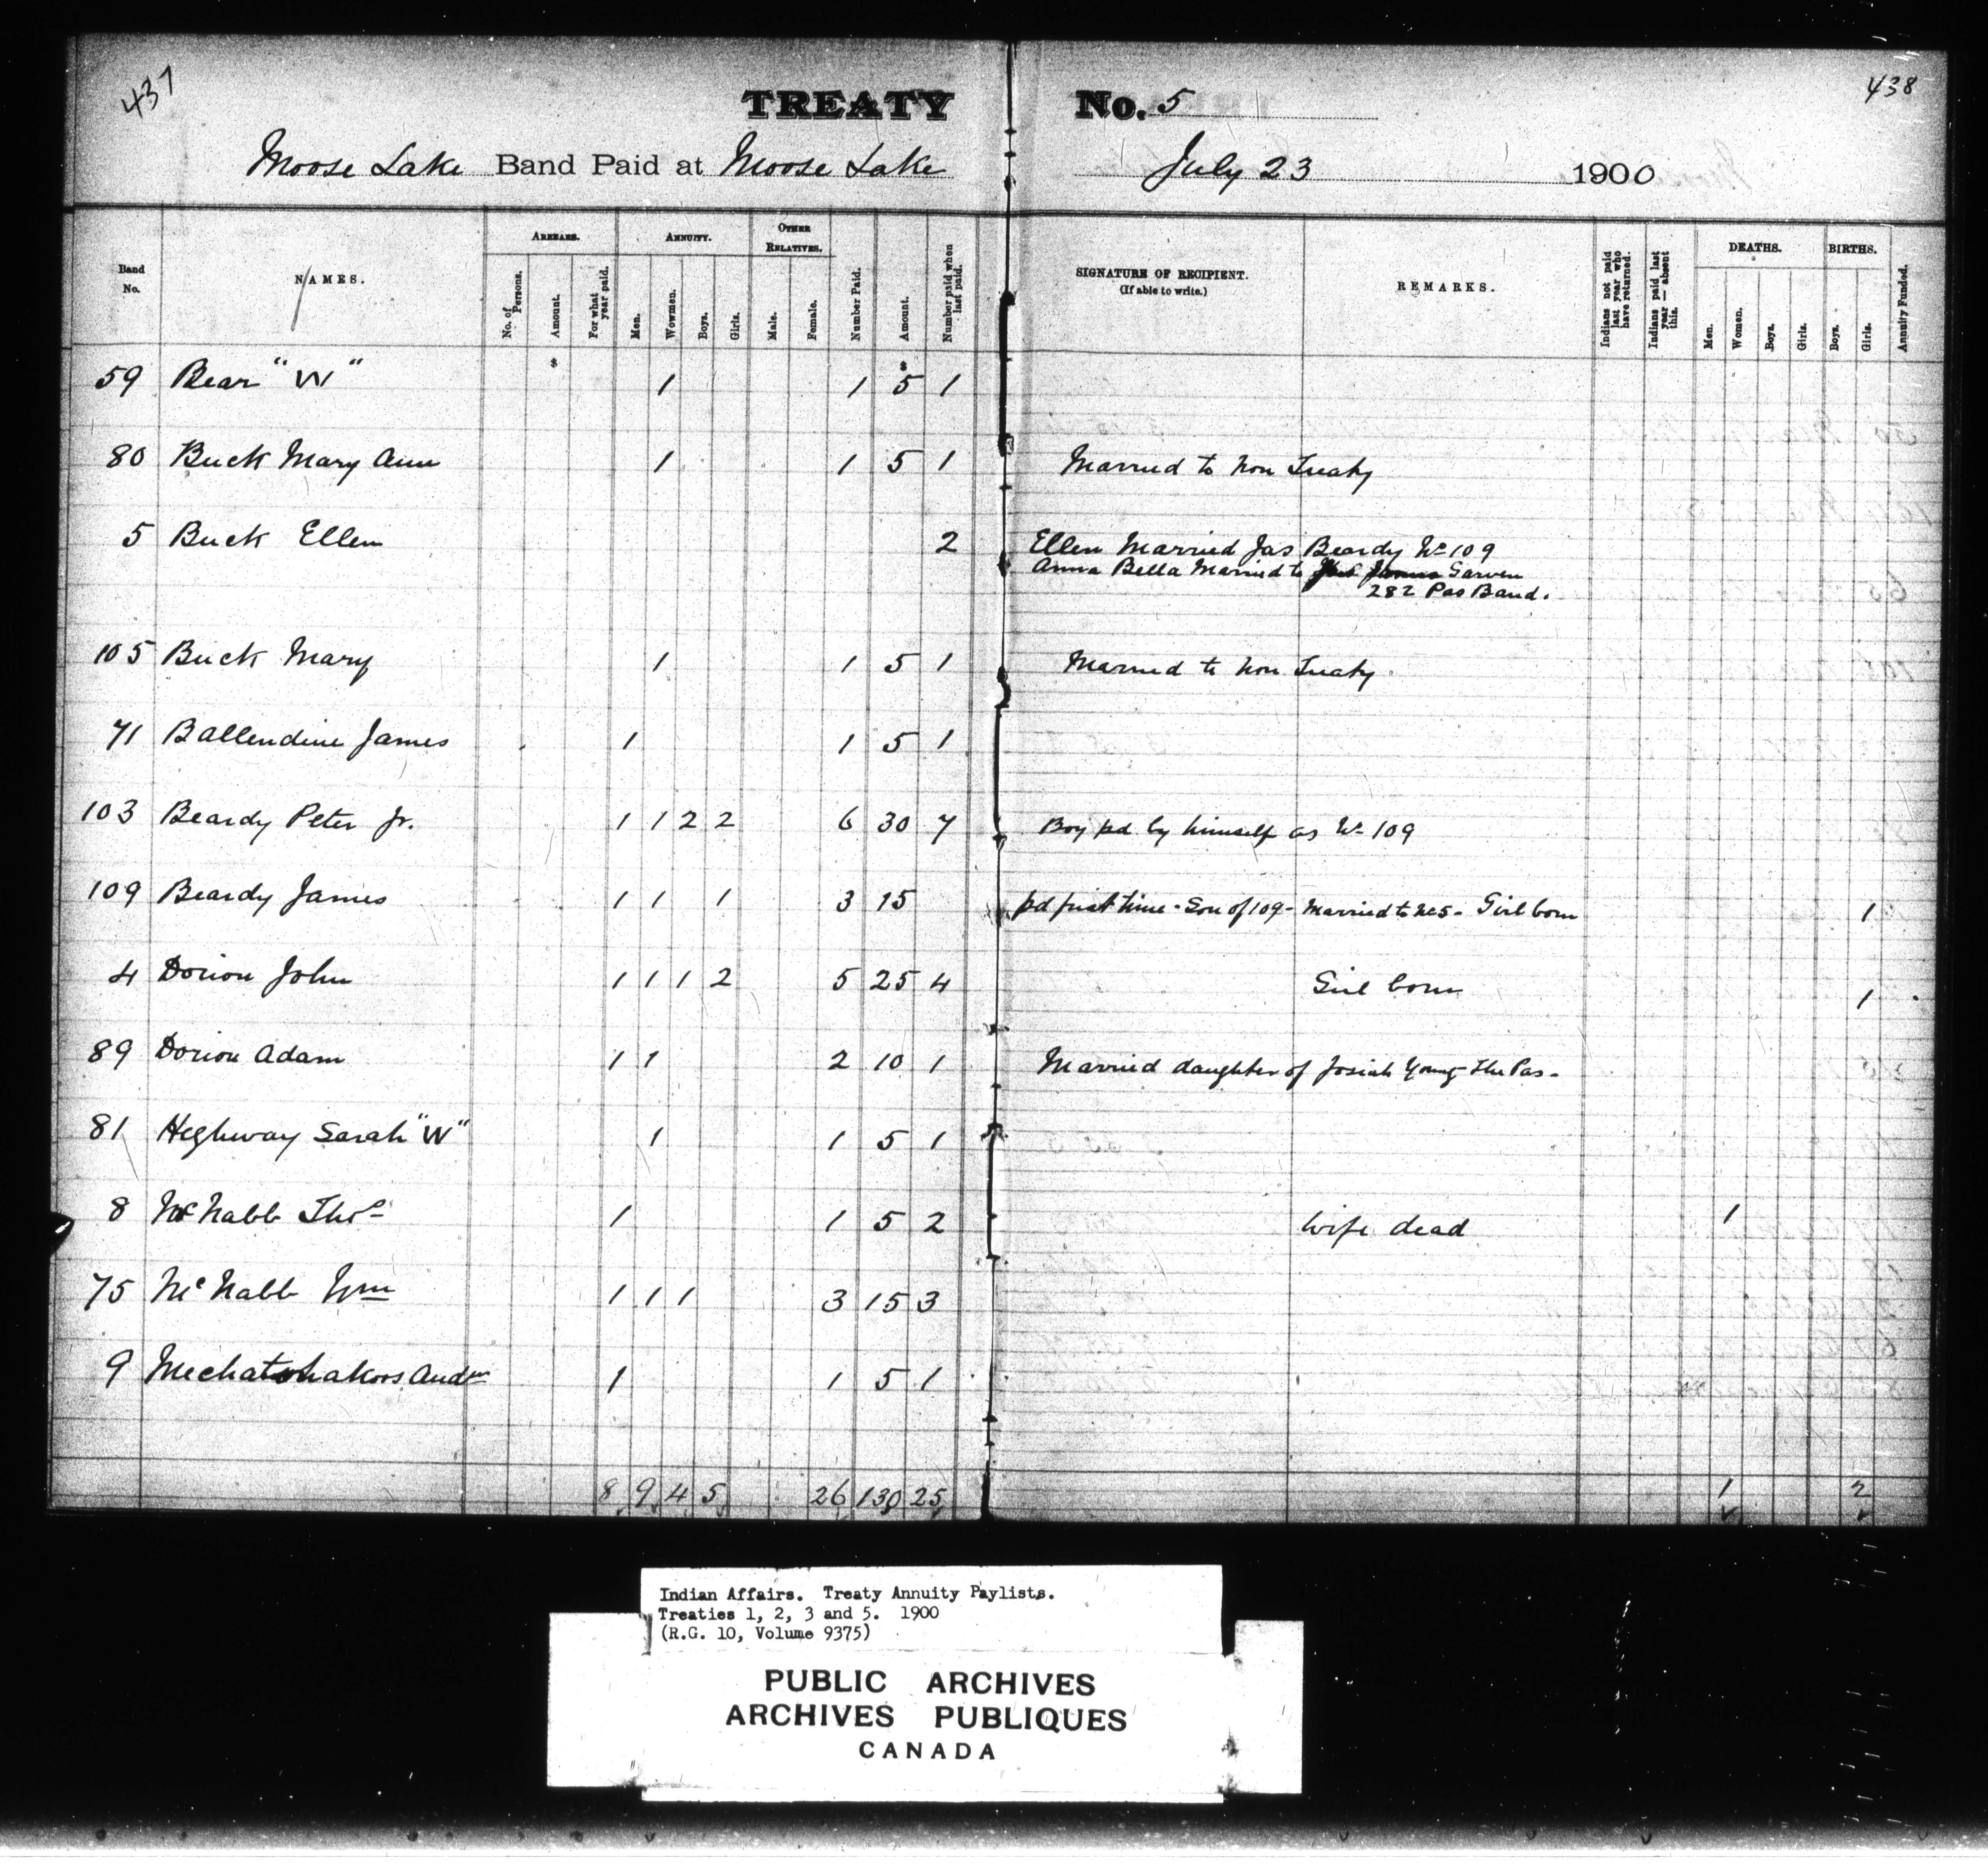 437
438
TREATY No. 5
Moose Lake Band Paid at Moose Lake July 23 1900
Band No.
NAMES.
ARREARS.
No. of Persons.
Amount.
For what year paid.
ANNUITY.
Men.
Wowmen.
Boys.
Girls.
OTHER RELATIVES.
Male.
Female.
Number Paid.
Amount.
Number paid when last paid.
SIGNATURE OF RECIPIENT.
(If able to write.)
REMARKS.
Indians not paid last year who have returned.
Indians paid last year — absent this.
DEATHS.
Men.
Women.
Boys.
Girls.
BIRTHS.
Boys.
Girls.
Annuity Funded.
59 Bear "W" 1 1 5 1
80 Buck Mary Ann 1 1 5 1 Married to non Treaty
5 Buck Ellen 2 Ellen Married Jas Beardy No 109
Anna Bella Married to Garven
282 Pas Band.
105 Buck Mary 1 1 5 1 Married to non Treaty.
71 Ballendine James 1 1 5 1
103 Beardy Peter Jr. 1 1 2 2 6 30 7 Boy pd by himself as No 109
109 Beardy James 1 1 1 3 15 pd first time - Son of 109 - Married to No 5 - Girl born 1
4 Dorion John 1 1 1 2 5 25 4 Girl born 1
89 Dorion Adam 1 1 2 10 1 Married daughter of Josiah Young The Pas -
81 Heghway Sarah "W" 1 1 5 1
8 McNabb Thos 1 1 5 2 Wife dead 1
75 McNabb Wm 1 1 1 3 15 3
9 Andw 1 1 5 1
8 9 4 5 26 130 25 1 2
Indian Affairs. Treaty Annuity Paylists.
Treaties 1, 2, 3 and 5. 1900
(R.G. 10, Volume 9375)
PUBLIC ARCHIVES
ARCHIVES PUBLIQUES
CANADA